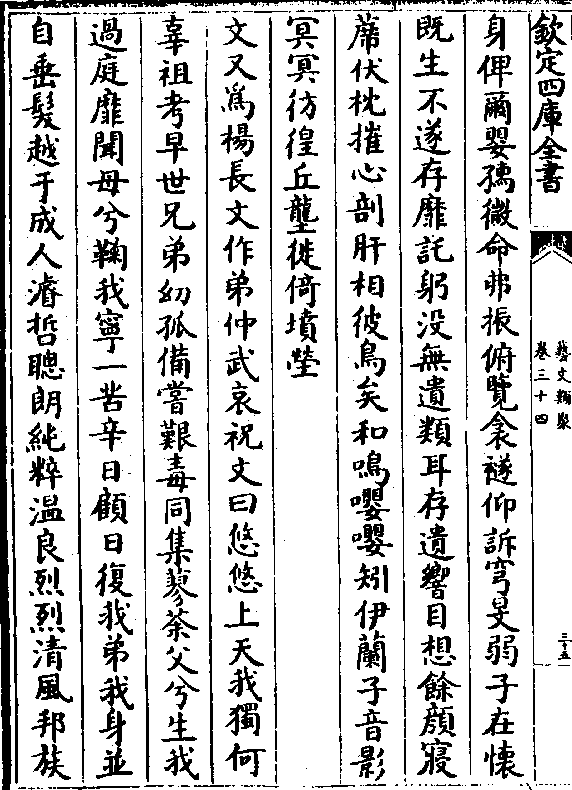 欽定四庫全書
藝文類聚
卷三十四
三十五
身俾爾嬰孺微命弗振俯覽衾襚仰訴穹旻弱子在懷
既生不遂存靡託躬没無遺類耳存遺響目想餘顔寢
蓆伏枕摧心剖肝相彼鳥矣和鳴嚶嚶矧伊蘭子音影
冥冥彷徨丘壟徙倚墳塋
文又為楊長文作弟仲武哀祝文曰悠悠上天我獨何
辜祖考早世兄弟幼孤備嘗艱毒同集蓼荼父兮生我
過庭靡聞母兮鞠我寧一苦辛日顧日復我弟我身並
自垂髮越于成人濬哲聰朗純粹温良烈烈清風邦族